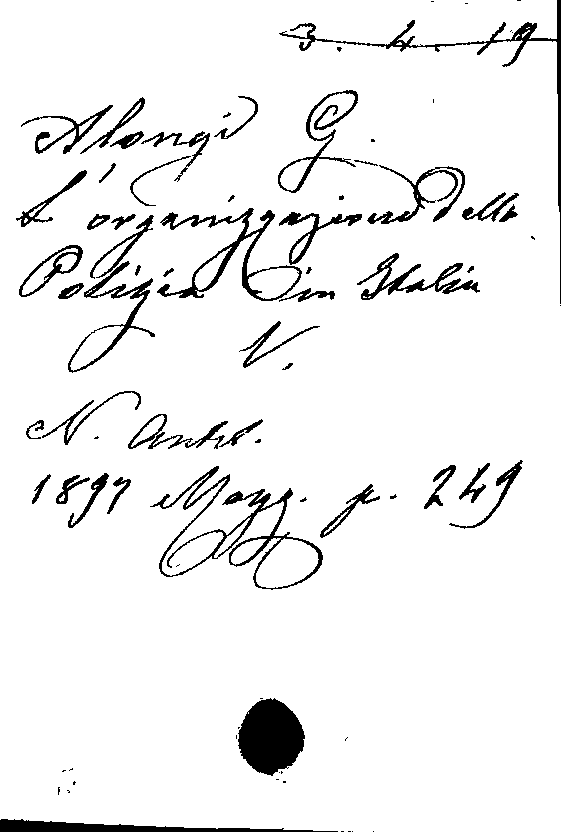 3. 4. 19
Alongi G.
L'organizzazione della
Polizia in Italia
V.
N. Antol.
1897 Magg. p. 249